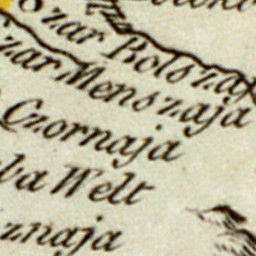 Szar Bolszaja
zar Menszaja
Czornaja
Welt
znaja